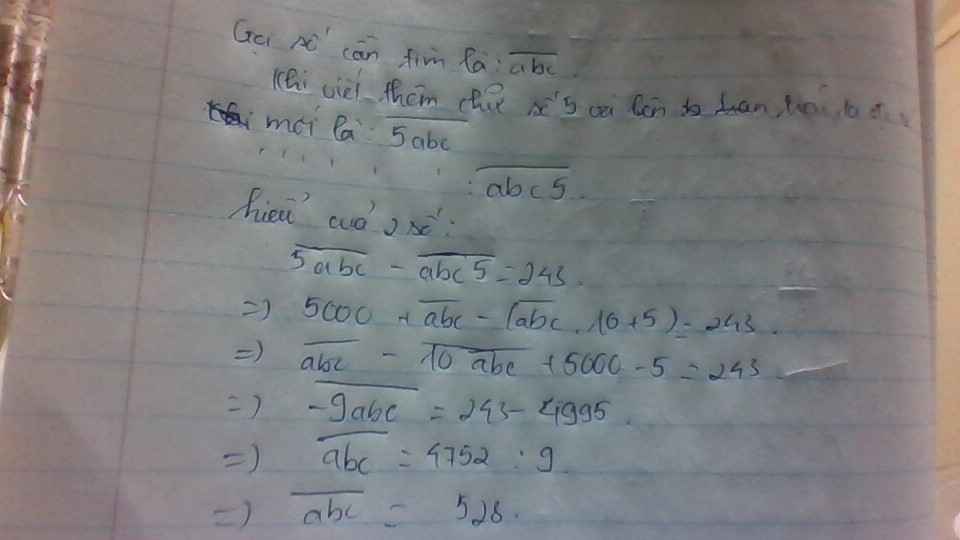 Gọi số cần tìm là: abc.
Khi viết thêm chữ số 5 bên
mới là: 5abc
: abc5.
hiệu của 2 số:
5abc - abc5 = 243.
=) 5000 + abc - (abc . 10 + 5) = 243.
=) abc - 10 abc + 5000 - 5 = 243
=) -9abc = 243 - 4995.
=) abc = 4752 : 9
=) abc = 528.